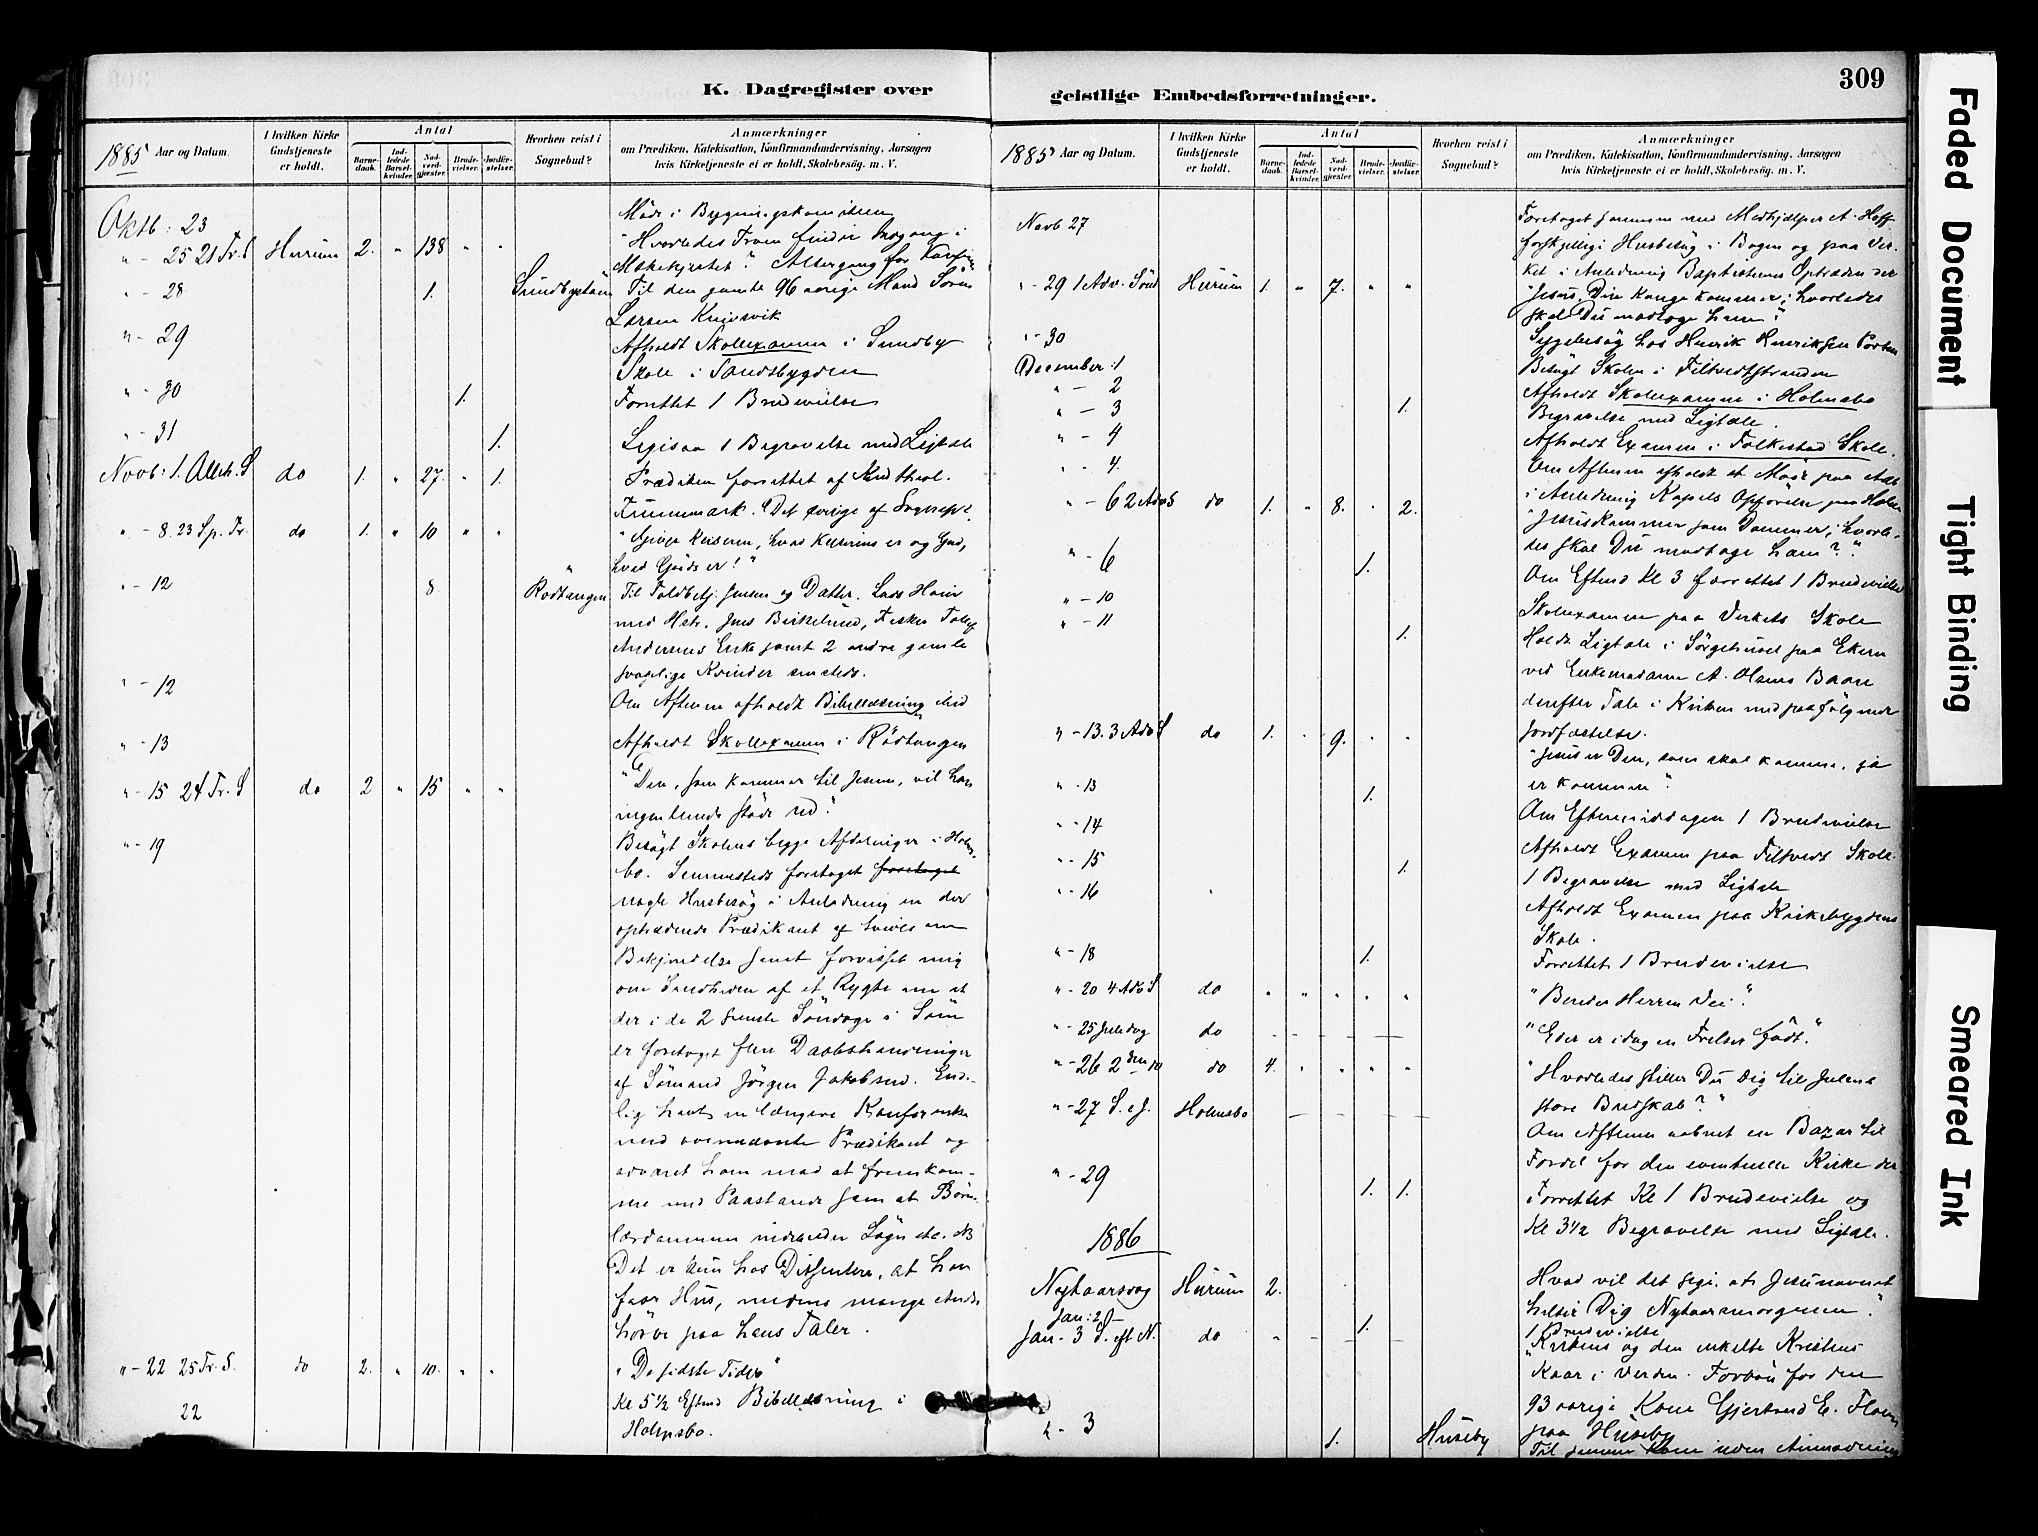 K. Dagregister over
1885 Aar og Datum.
I hvilken Kirke Gudstjeneste er holdt.
Antal
Barnedaab.
Indledede Barselkvinder.
Nadverdgjæster.
Brudevielser.
Jordfæstelser.
Hvorhen reist i Sognebud?
Anmærkninger
om Prædiken, Katekisation, Konfirmandundervisning, Aarsagen
hvis Kirketjeneste ei er holdt, Skolebesøg. m. V.
Oktb: 23 Møde i
" - 25 21 Tr. S Hurum 2. " 138 " " "Hvorledes Troen finder Indgang i
Altergang for
" - 28 1. Til den gamle 96 aarige Mand Sören
Larsen Knivsvik
" - 29 Afholdt Skolexamen i Sundby
Skole i Tondsbygden
" - 30 1. Forrettet 1 Brudevielse
" - 31 1. 1 Begravelse med Ligtale
Novb: 1. Alleh. S do 1. " 27. " 1. Prædiken forrettet af Kand. theol.
Det øvrige af Sognepr.
" - 8. 23 S. p. Tr. do 1. " 10 " " "Giver Keiseren, hvad Keiserens er og Gud,
hvad Guds er!"
" - 12 8 Rødtangen Til Toldbetj. Jensen og Datter. Lods
med Hstr. Jens Birkelund, Fisker
Andersens Enke samt 2 andre gamle
svagelige Kvinder smsteds.
" - 12 Om Aftenen afholdt Bibellæsning
" - 13 Afholdt Skolexamen i Rödtangen
" - 15 24 Tr. S do 2 " 15 " " "Den, som kommer til Jesum, vil han
ingenlunde støde ud."
" - 19 Besøgt Skolens begge Afdelinger i Holms-
bo. Sammesteds foretaget foretaget
nogle Husbesøg i Anledning en der
optrædende Prædikant af hvis
Bekjendelse samt forvisset mig
om Sandheden af et Rygte om at
der i de 2 seneste Söndage i Søen
er foretaget flere Daabshandlinger
af Sömand Jörgen Jakobsen. End-
lig havt en længere Konferanse
med ovennævnte Prædikant og
advaret ham mod at fremkom-
me med Paastande som at Børne-
lærdommen indeholder Løgn etc. NB
Det er kun hos Dissentere, at han
faar Hus, medens mange Andre
hörer paa hans Taler.
" - 22 25 Tr. S. do 2. " 10. " " "De sidste Tider"
22 Kl 5 1/2 Eftmd Bibellæsning i
Holmsbo.
309
geistlige Embedsforretninger.
1885 Aar og Datum.
I hvilken Kirke Gudstjeneste er holdt.
Antal
Barnedaab.
Indledede Barselkvinder.
Nadverdgjæster.
Brudevielser.
Jordfæstelser.
Hvorhen reist i Sognebud?
Anmærkninger
om Prædiken, Katekisation, Konfirmandundervisning, Aarsagen
hvis Kirketjeneste ei er holdt, Skolebesøg. m. V.
Novb 27 Foretaget sammen med Medhjælper A. Hoff
forskjellige Husbesøg i Bogen og paa Ver-
ket i Anledning Baptisternes Optræden der
" - 29 1 Adv. Sönd Hurum 1. " 7. " " "Jesus, Din Konge kommer; hvorledes
skal Du modtage ham?"
" - 30 Sygebesøg hos Henrik Henriksen
December 1 Besøgt Skolen i Filtvedtstranden
" - 2 Afholdt Skolexamen i Holmsbo
" - 3 1. Begravelse med Ligtale.
" - 4 Afholdt Examen i Folkestad Skole.
" - 4. Om Aftenen afholdt et Møde paa
i Anledning Kapels Opførelse paa Holmsbo
" - 6 2 Adv S do 1. " 8. " 2. "Jesus kommer som Dommer; hvorle-
des skal Du modtage ham?"
" - 6 1. Om Eftmd Kl 3 forrettet 1 Brudevielse
" - 10 Skolexamen paa Verkets Skole
" - 11 1. Holdt Ligtale i Sørgehuset paa Ekern
ved Enkemadame A. Olsens Baare
derefter Tale i Kirken med paafølgende
Jordfæstelse.
" - 13. 3 Adv S do 1. " 9. " " "Jesus er Den, som skal komme, ja
er kommen".
" - 13 1. Om Eftermiddagen 1 Brudevielse
" - 14 Afholdt Examen paa Filtvedt Skole
" - 15 1. 1 Begravelse med Ligtale
" - 16 Afholdt Examen paa Kirkebygdens
Skole.
" - 18 1. Forrettet 1 Brudevielse
" - 20 4 Adv S do " " " " " "Bereder Herren Vei".
" - 25 Juledag do - - - - - "Eder er idag en Frelser født."
" - 26 2den do do 4. " " " " "Hvorledes stiller Du Dig til Julens
store Budskab?"
" - 27 S. e J. Holmsbo - - - - - Om Aftenen aabnet en Bazar til
Fordel for den eventuelle Kirke der
" - 29 1. 1. Forrettet Kl 1 Brudevielse og
Kl 3 1/2 Begravelse med Ligtale.
1886
Nytaarsdag Hurum 2. Hvad vil det sige, at Jesunavnet
hilser Dig Nytaarsmorgenen".
Jan: 2 1. 1 Brudevielse
Jan. 3 S. eft N. do - - - - - "Kirkens og den enkelte Kristens
Kaar i Verden. Forbøn for den
93 aarige Kone Gjertrud E.
paa Huseby
" - 3 1. Huseby Til samme Kone uden Anmodning
Faded Document
Tight Binding
Smeared Ink